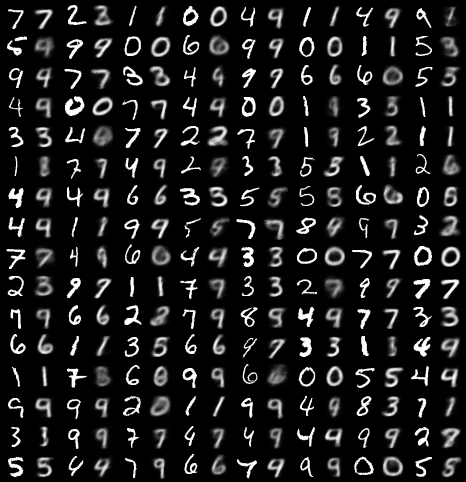 7 7 2 1 1 0 0 4 9 1 1 4 9 9
5 9 9 9 0 0 6 9 9 0 0 1 1 5 3
9 9 7 7 3 3 4 9 9 9 6 6 6 0 5 5
4 9 0 0 7 7 4 9 0 0 1 3 5 1 1
3 3 4 7 9 2 2 7 9 1 9 2 2 1 1
1 7 9 4 9 2 3 3 5 5 1 1 2 6
4 9 4 9 6 6 3 3 5 5 5 8 6 6 0 5
4 9 1 1 9 9 5 5 7 9 8 9 9 9 3 2
7 7 4 9 6 0 4 4 3 3 0 0 7 7 0 0
2 3 9 9 1 1 7 9 3 3 2 9 9 9 7 7
7 9 6 6 2 2 7 9 8 9 4 9 7 7 3 3
6 6 1 1 3 5 6 6 9 9 3 3 1 4 9
1 1 7 6 0 9 9 6 0 0 5 5 4 9
9 9 9 9 2 0 1 1 9 9 4 9 8 3 7 1
3 3 9 9 7 7 4 7 4 9 4 9 9 9 2 8
5 5 4 4 7 9 6 6 7 9 9 9 0 0 5 5